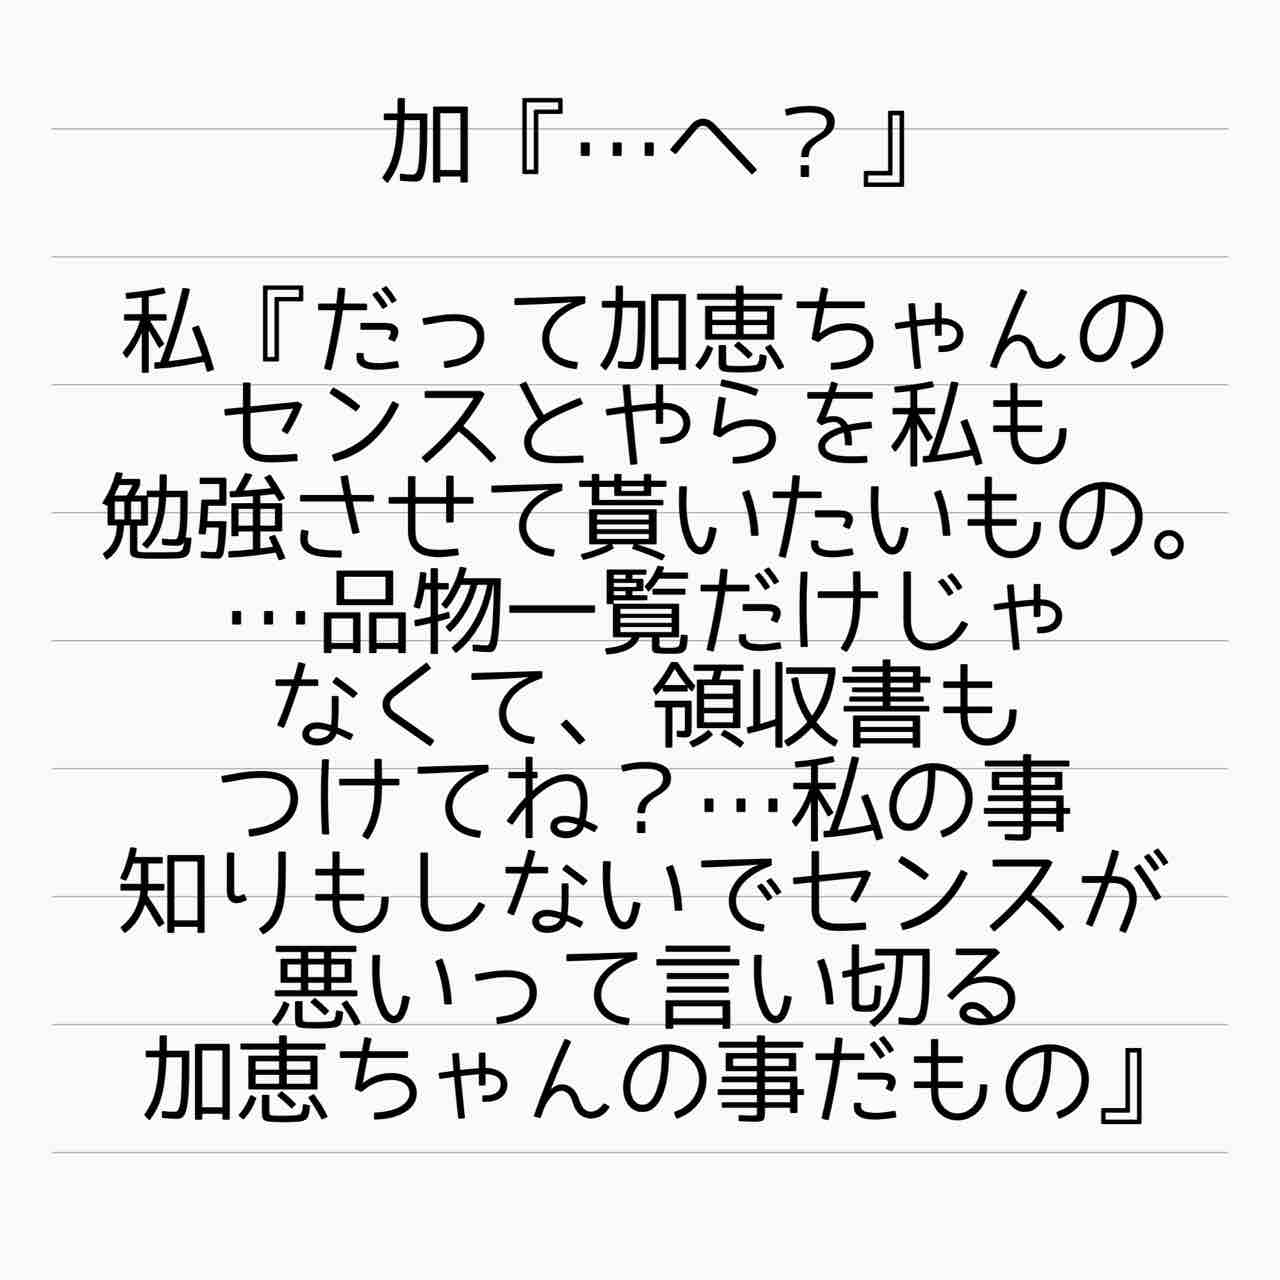 加『…へ？』
私『だって加恵ちゃんの
センスとやらを私も
勉強させて貰いたいもの。
…品物一覧だけじゃ
なくて、領収書も
つけてね？…私の事
知りもしないでセンスが
悪いって言い切る
加恵ちゃんの事だもの』